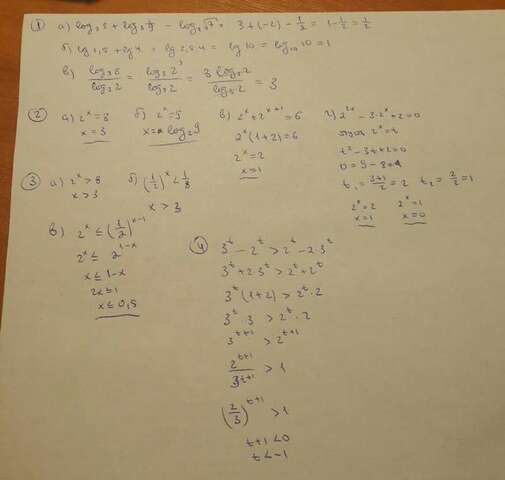 1 а) log₂8 + log₃ 1/9 - log₇√7 = 3+(-2) - 1/2 = 1-1/2 = 1/2
б) lg 2,5 + lg 4 = lg 2,5·4 = lg 10 = log₁₀10 = 1
в) log₅8 / log₅2 = log₅2³ / log₅2 = 3 log₅2 / log₅2 = 3
2 а) 2ˣ=8
x=3
б) 2ˣ=9
x= log₂9
в) 2ˣ+2ˣ⁺¹=6
2ˣ(1+2)=6
2ˣ=2
x=1
г) 2²ˣ - 3·2ˣ+2=0
пусть 2ˣ=t
t²-3t+2=0
D=9-8=1
t₁ = (3+1)/2 = 2 t₂ = 2/2 = 1
2ˣ=2 2ˣ=1
x=1 x=0
3 а) 2ˣ>8
x>3
б) (1/2)ˣ < 1/8
x>3
в) 2ˣ ≤ (1/2)ˣ⁻¹
2ˣ ≤ 2¹⁻ˣ
x ≤ 1-x
2x ≤ 1
x ≤ 0,5
4 3ᵗ - 2ᵗ > 2ᵗ - 2·3ᵗ
3ᵗ + 2·3ᵗ > 2ᵗ + 2ᵗ
3ᵗ(1+2) > 2ᵗ·2
3ᵗ·3 > 2ᵗ·2
3ᵗ⁺¹ > 2ᵗ⁺¹
2ᵗ⁺¹ / 3ᵗ⁺¹ > 1
(2/3)ᵗ⁺¹ > 1
t+1 < 0
t < -1